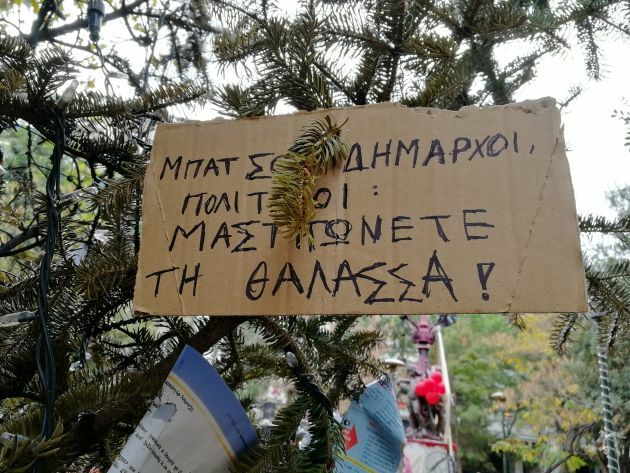 ΜΠΑΤΣΟΙ ΔΗΜΑΡΧΟΙ,
ΠΟΛΙΤΙΚΟΙ:
ΜΑΣΤΙΓΩΝΕΤΕ
ΤΗ ΘΑΛΑΣΣΑ!